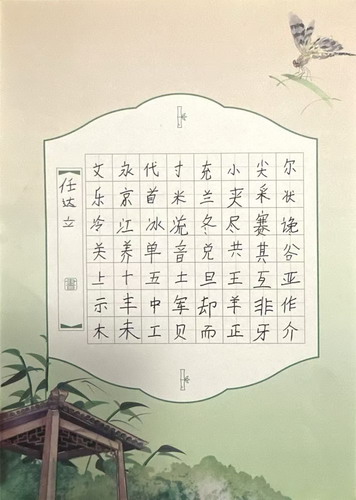 尔状谷亚作介
尖采寒其互非牙
小夹尽共王羊正
充兰冬兑旦却而
寸米流音土军贝
代首冰单五中工
永京江养十丰未
文乐冷关上示木
任达立 書